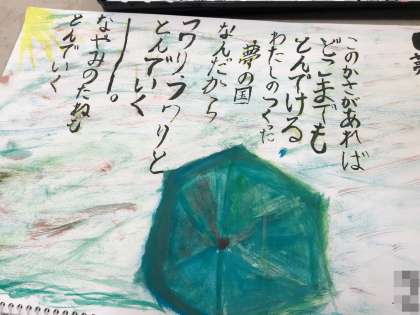 このかさがあれば
どこまでも
とんでける
わたしのつくった
夢の国
なんだから
フワリ・フワリと
とんでいく
なやみのたねも
とんでーいく